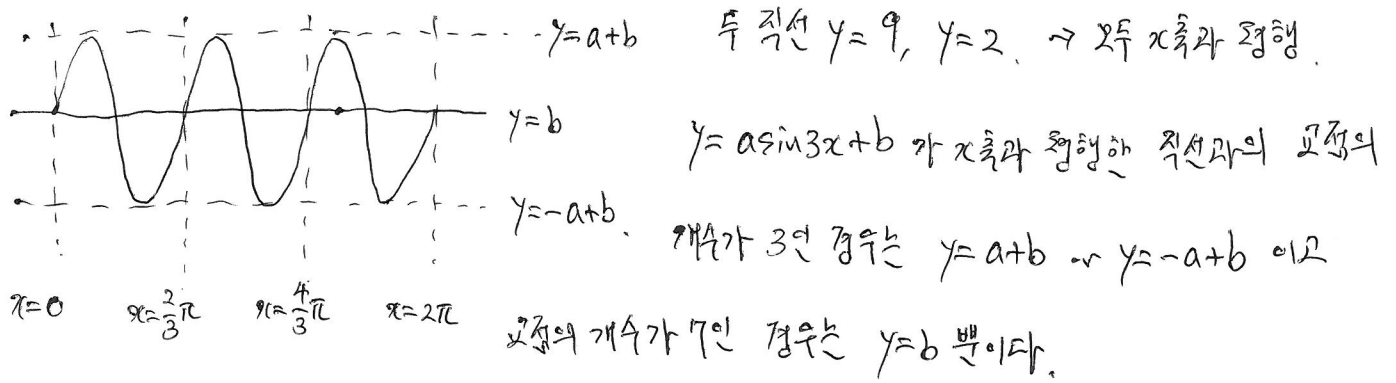 y=a+b
y=b
y=-a+b.
x=0
x=2/3π
x=4/3π
x=2π
두 직선 y=9, y=2. → 모두 x축과 평행.
y=asin3x+b 가 x축과 평행한 직선과의 교점의
개수가 3인 경우는 y=a+b or y=-a+b 이고
교점의 개수가 7인 경우는 y=b 뿐이다.